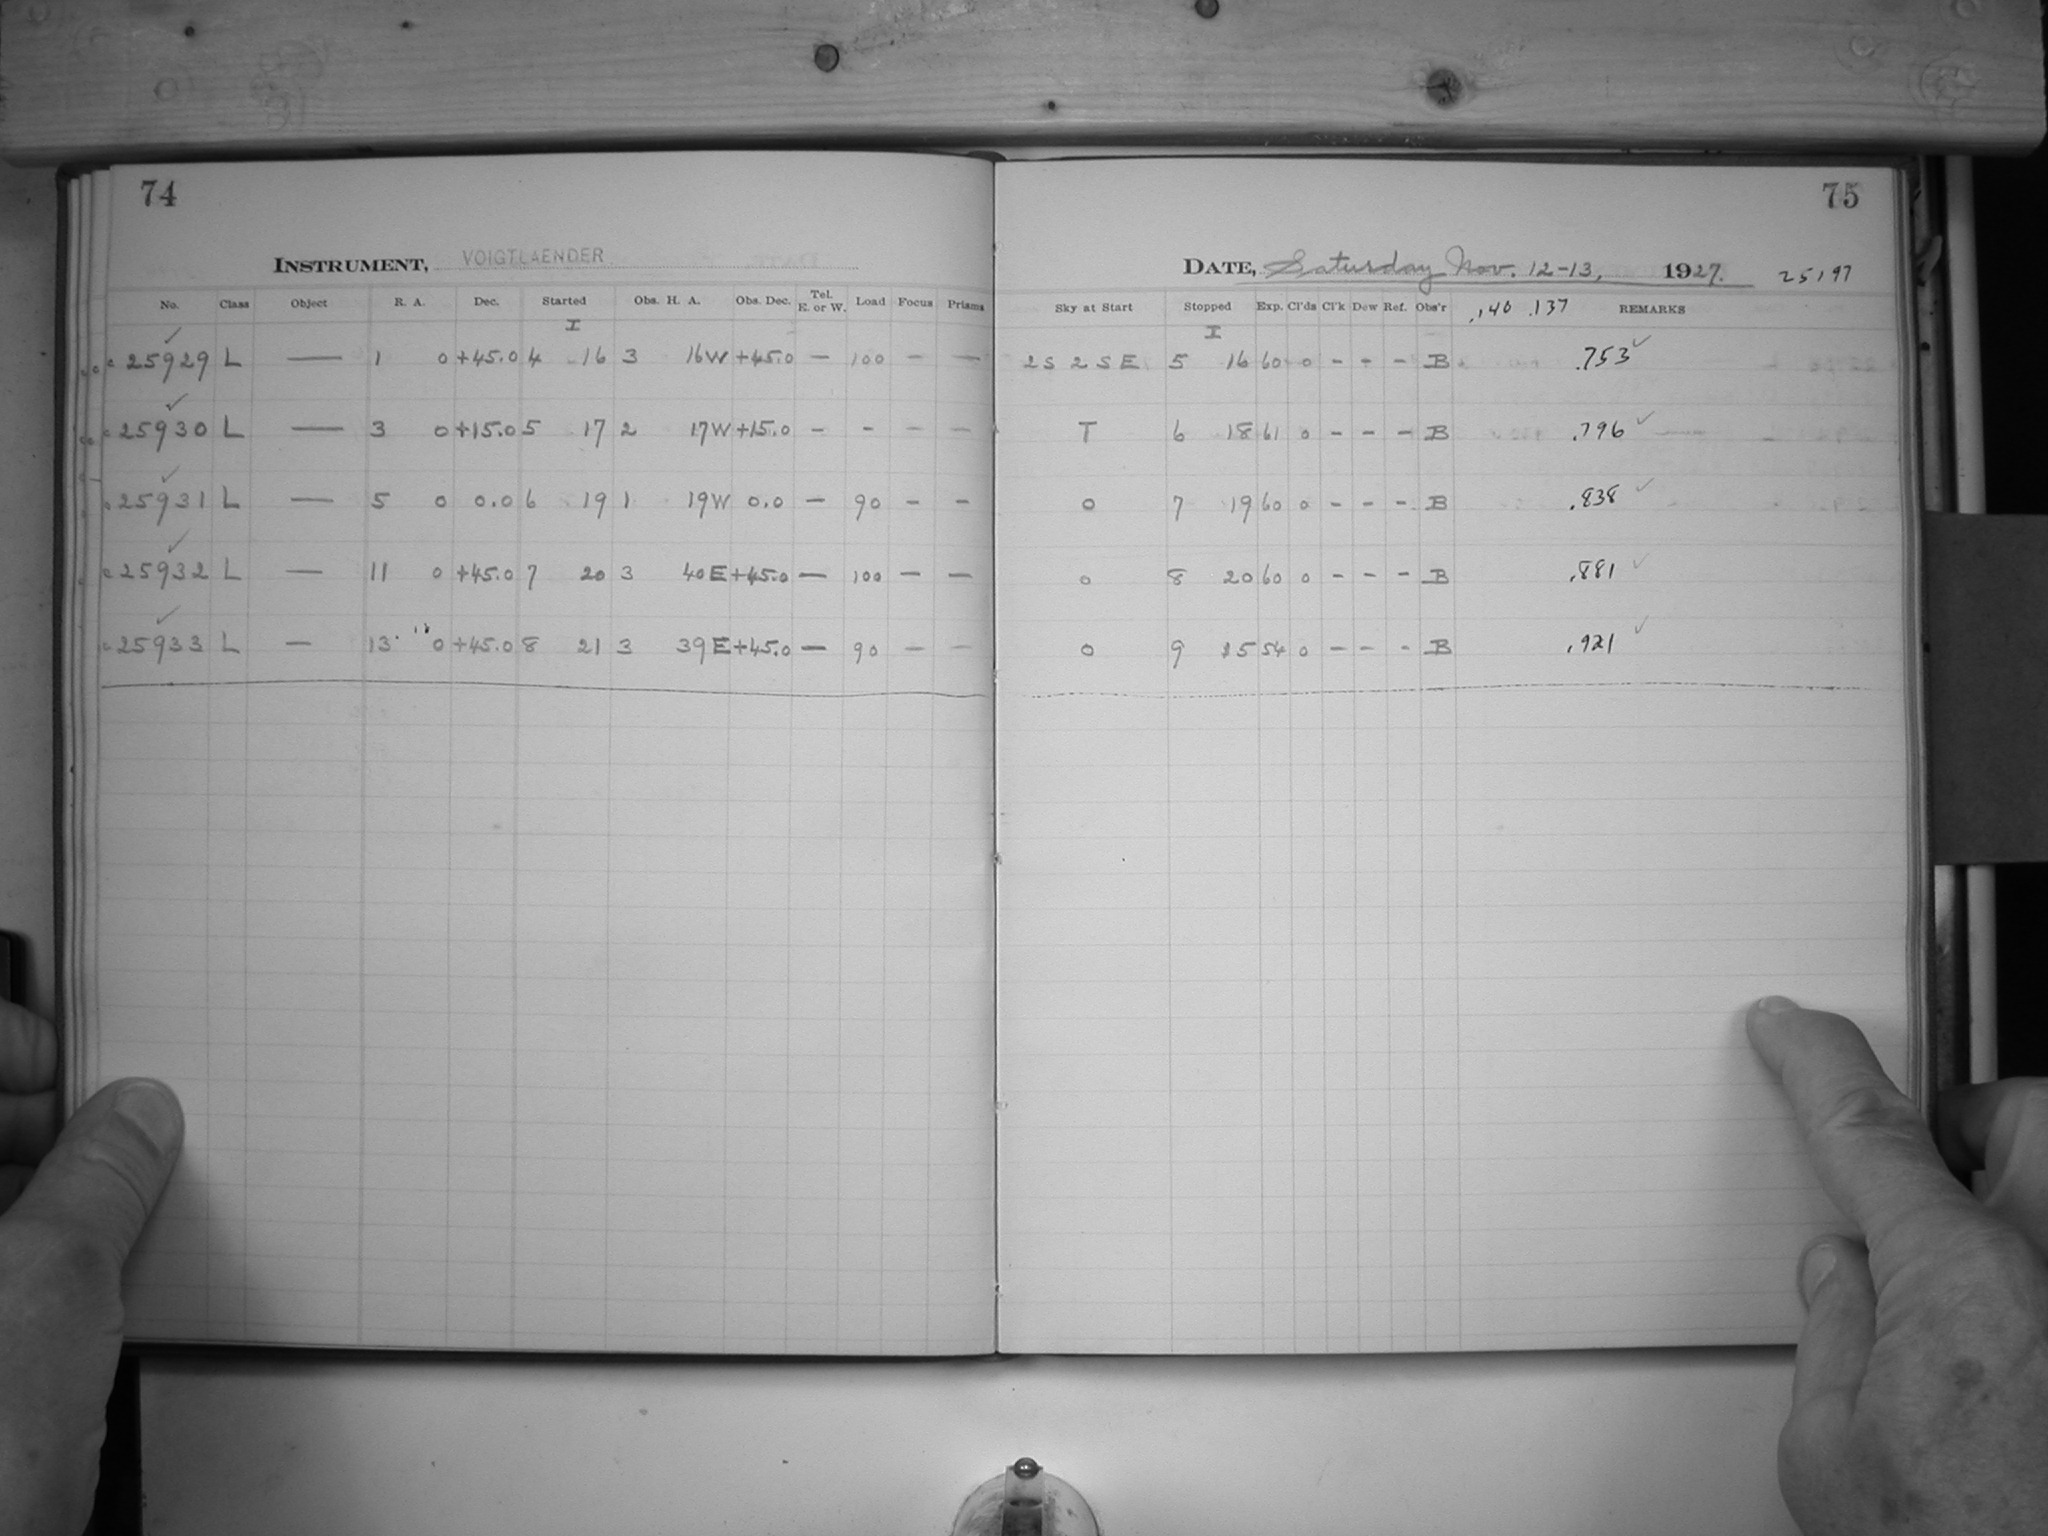 74
INSTRUMENT, VOIGTLAENDER
No. Class Object R. A. Dec. Started Obs. H. A. Obs. Dec. Tel. E. or W. Load Focus Prisms
I
c 25929 L — 1 0 +45.0 4 16 3 16W +45.0 — 100 – —
c 25930 L — 3 0 +15.0 5 17 2 17W +15.0 – – – –
c 25931 L — 5 0 0.0 6 19 1 19W 0.0 – 90 – –
c 25932 L — 11 0 +45.0 7 20 3 40E +45.0 — 100 – –
c 25933 L — 13 0 +45.0 8 21 3 39E +45.0 — 90 – –
75
DATE, Saturday Nov. 12-13, 1927. 25197
Sky at Start Stopped Exp. Cl'ds Cl'k Dew Ref. Obs'r .140 .137 REMARKS
I
2S 2SE 5 16 60 0 – – – B .753 ✓
T 6 18 61 0 – – – B .796 ✓
0 7 19 60 0 – – – B .838 ✓
0 8 20 60 0 – – – B .881 ✓
0 9 15 54 0 – – – B .921 ✓